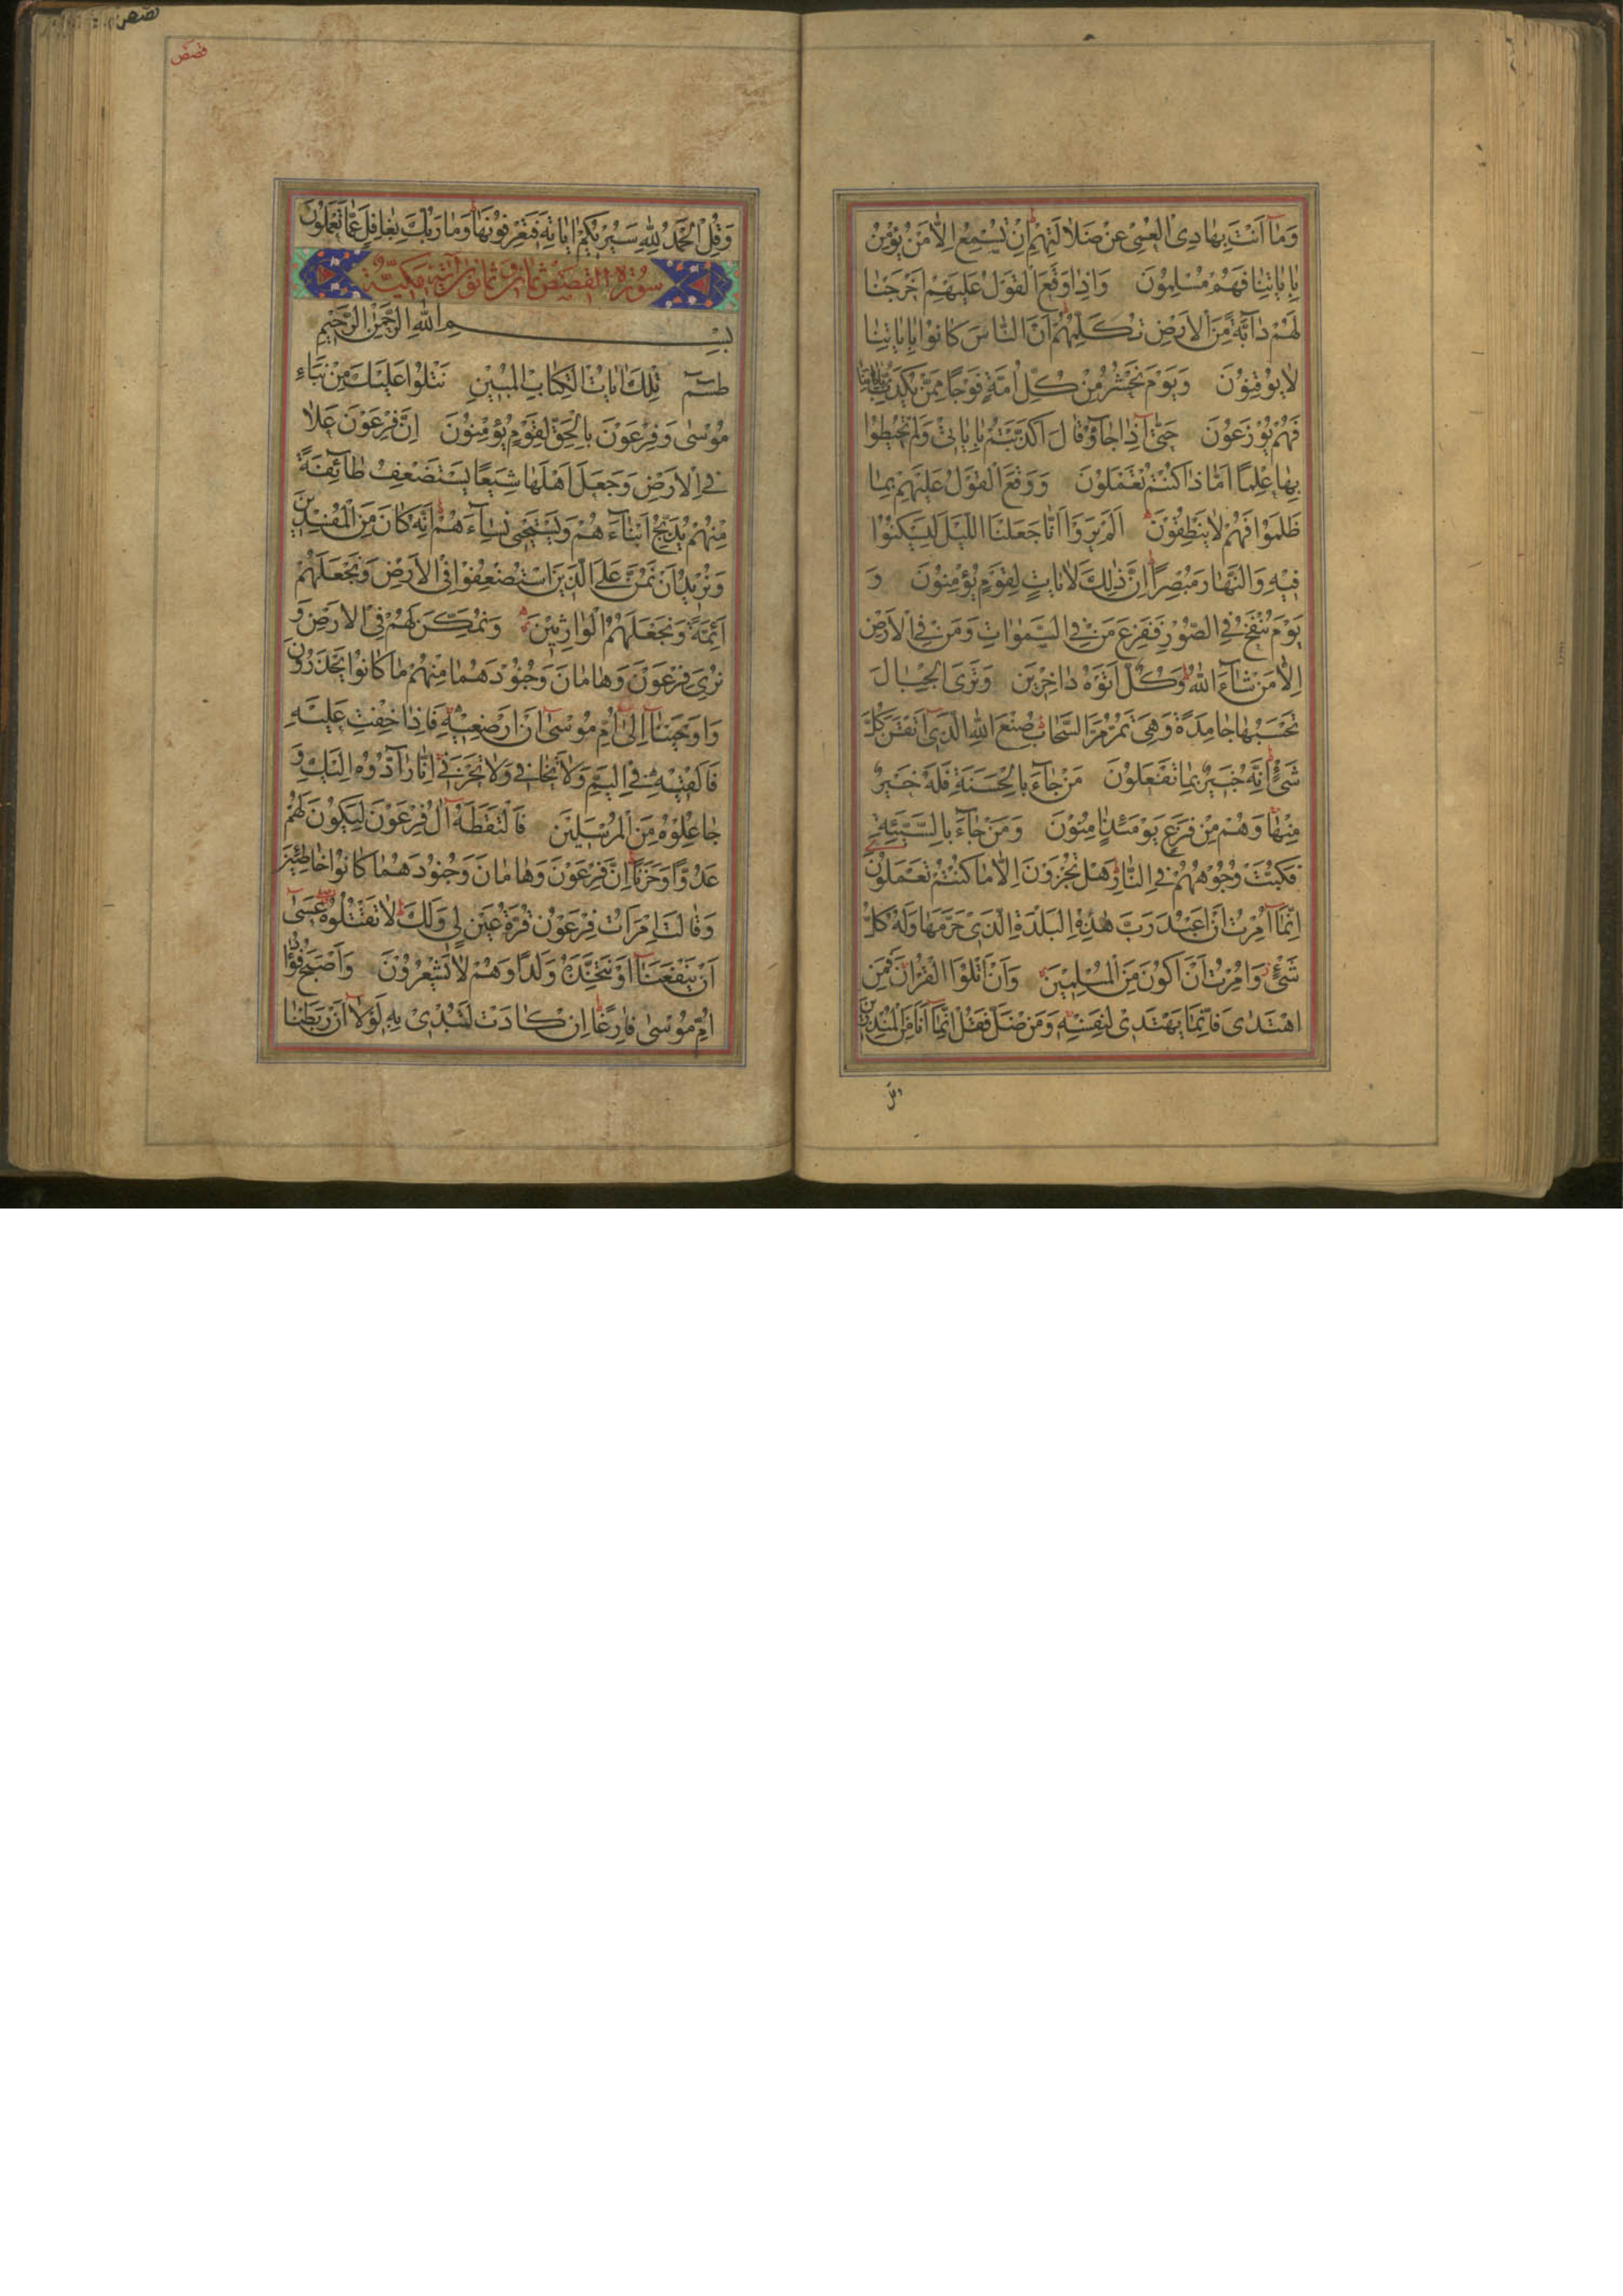 وَمَا اَنْتَ بِهَادِی الْعُمْیِ عَنْ ضَلَالَتِهِمْ اِنْ تُسْمِعُ اِلَّا مَنْ يُؤْمِنُ
بِاٰيَاتِنَا فَهُمْ مُسْلِمُونَ وَاِذَا وَقَعَ الْقَوْلُ عَلَيْهِمْ اَخْرَجْنَا
لَهُمْ دَآبَّةً مِّنَ الْاَرْضِ تُكَلِّمُهُمْ اَنَّ النَّاسَ كَانُوا بِاٰيَاتِنَا
لَا يُوقِنُونَ وَيَوْمَ نَحْشُرُ مِنْ كُلِّ اُمَّةٍ فَوْجًا مِمَّنْ يُكَذِّبُ بِاٰيَاتِنَا
فَهُمْ يُوزَعُونَ حَتّٰى اِذَا جَآؤُ قَالَ اَكَذَّبْتُمْ بِاٰيَاتِیْ وَلَمْ تُحِيْطُوا
بِهَا عِلْمًا اَمَّا ذَا كُنْتُمْ تَعْمَلُونَ وَوَقَعَ الْقَوْلُ عَلَيْهِمْ بِمَا
ظَلَمُوا فَهُمْ لَا يَنْطِقُوْنَ اَلَمْ يَرَوْا اَنَّا جَعَلْنَا اللَّيْلَ لِيَسْكُنُوا
فِيْهِ وَالنَّهَارَ مُبْصِرًا اِنَّ ذٰلِكَ لَاٰيَاتٍ لِقَوْمٍ يُؤْمِنُونَ وَ
يَوْمَ يُنْفَخُ فِی الصُّوْرِ فَفَزِعَ مَنْ فِی السَّمٰوَاتِ وَمَنْ فِی الْاَرْضِ
اِلَّا مَنْ شَآءَ اللّٰهُ وَكُلٌّ اَتَوْهُ دَاخِرِيْنَ وَتَرَى الْجِبَالَ
تَحْسَبُهَا جَامِدَةً وَهِیَ تَمُرُّ مَرَّ السَّحَابِ صُنْعَ اللّٰهِ الَّذِیْ اَتْقَنَ كُلَّ
شَیْءٍ اِنَّهُ خَبِيْرٌ بِمَا تَفْعَلُونَ مَنْ جَآءَ بِالْحَسَنَةِ فَلَهُ خَيْرٌ
مِنْهَا وَهُمْ مِنْ فَزَعٍ يَوْمَئِذٍ اٰمِنُوْنَ وَمَنْ جَآءَ بِالسَّيِّئَةِ
فَكُبَّتْ وُجُوْهُهُمْ فِی النَّارِ هَلْ تُجْزَوْنَ اِلَّا مَا كُنْتُمْ تَعْمَلُوْنَ
اِنَّمَا اُمِرْتُ اَنْ اَعْبُدَ رَبَّ هٰذِهِ الْبَلْدَةِ الَّذِیْ حَرَّمَهَا وَلَهُ كُلُّ
شَیْءٍ وَاُمِرْتُ اَنْ اَكُوْنَ مِنَ الْمُسْلِمِيْنَ وَاَنْ اَتْلُوَا الْقُرْاٰنَ فَمَنِ
اهْتَدٰى فَاِنَّمَا يَهْتَدِیْ لِنَفْسِهِ وَمَنْ ضَلَّ فَقُلْ اِنَّمَا اَنَا مِنَ الْمُنْذِرِيْنَ
وقل
قصص
وَقُلِ الْحَمْدُ لِلّٰهِ سَيُرِيْكُمْ اٰيَاتِهِ فَتَعْرِفُوْنَهَا وَمَا رَبُّكَ بِغَافِلٍ عَمَّا تَعْمَلُوْنَ
سُوْرَةُ الْقَصَصِ ثمان و ثمانون اٰية مَكِّيَّةٌ
بِسْمِ اللّٰهِ الرَّحْمٰنِ الرَّحِيْمِ
طٰسٓمٓ تِلْكَ اٰيَاتُ الْكِتَابِ الْمُبِيْنِ نَتْلُوْا عَلَيْكَ مِنْ نَبَاءِ
مُوْسٰى وَفِرْعَوْنَ بِالْحَقِّ لِقَوْمٍ يُؤْمِنُوْنَ اِنَّ فِرْعَوْنَ عَلَا
فِی الْاَرْضِ وَجَعَلَ اَهْلَهَا شِيَعًا يَسْتَضْعِفُ طَآئِفَةً
مِنْهُمْ يُذَبِّحُ اَبْنَآءَهُمْ وَيَسْتَحْیِ نِسَآءَهُمْ اِنَّهُ كَانَ مِنَ الْمُفْسِدِيْنَ
وَنُرِيْدُ اَنْ نَمُنَّ عَلَى الَّذِيْنَ اسْتُضْعِفُوْا فِی الْاَرْضِ وَنَجْعَلَهُمْ
اَئِمَّةً وَنَجْعَلَهُمُ الْوَارِثِيْنَ وَنُمَكِّنَ لَهُمْ فِی الْاَرْضِ وَ
نُرِیَ فِرْعَوْنَ وَهَامَانَ وَجُنُوْدَهُمَا مِنْهُمْ مَا كَانُوْا يَحْذَرُوْنَ
وَاَوْحَيْنَا اِلٰى اُمِّ مُوْسٰى اَنْ اَرْضِعِيْهِ فَاِذَا خِفْتِ عَلَيْهِ
فَاَلْقِيْهِ فِی الْيَمِّ وَلَا تَخَافِیْ وَلَا تَحْزَنِیْ اِنَّا رَآدُّوْهُ اِلَيْكِ وَ
جَاعِلُوْهُ مِنَ الْمُرْسَلِيْنَ فَالْتَقَطَهُ اٰلُ فِرْعَوْنَ لِيَكُوْنَ لَهُمْ
عَدُوًّا وَحَزَنًا اِنَّ فِرْعَوْنَ وَهَامَانَ وَجُنُوْدَهُمَا كَانُوْا خَاطِئِيْنَ
وَقَالَتِ امْرَاَتُ فِرْعَوْنَ قُرَّةُ عَيْنٍ لِیْ وَلَكَ لَا تَقْتُلُوْهُ عَسٰى
اَنْ يَنْفَعَنَا اَوْ نَتَّخِذَهُ وَلَدًا وَهُمْ لَا يَشْعُرُوْنَ وَاَصْبَحَ فُؤَادُ
اُمِّ مُوْسٰى فَارِغًا اِنْ كَادَتْ لَتُبْدِیْ بِهِ لَوْلَا اَنْ رَبَطْنَا